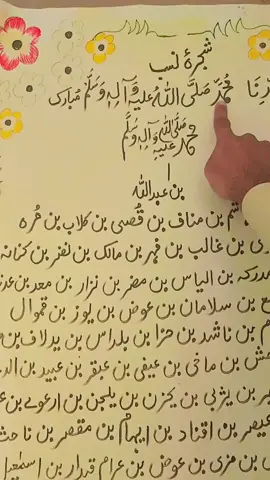 شجرۂ نسب
مُحَمَّد صَلَّی اللّٰہُ عَلَیہِ وَآلِہٖ وَسَلَّم مُبارک
محمد صَلَّی اللّٰہُ عَلَیہِ وَآلِہٖ وَسَلَّم
بن عبداللّٰہ
بن مناف بن قُصی بن کلاب بن مُرہ
بن غالب بن فہر بن مالک بن نضر بن کنانہ
مدرکہ بن الیاس بن مضر بن نزار بن معد بن
بن سلامان بن عوض بن یوز بن قموال
بن ناشد بن حزا بن بلداس بن یدلاف بن
بن ماخی بن عیفی بن عبقر بن عبید بن
بن یثربی بن یحزن بن یلحن بن ارعوے بن
بن اقناد بن ایہام بن مقصر بن
بن مزی بن عوض بن عرام قیدار بن اسمٰعیل